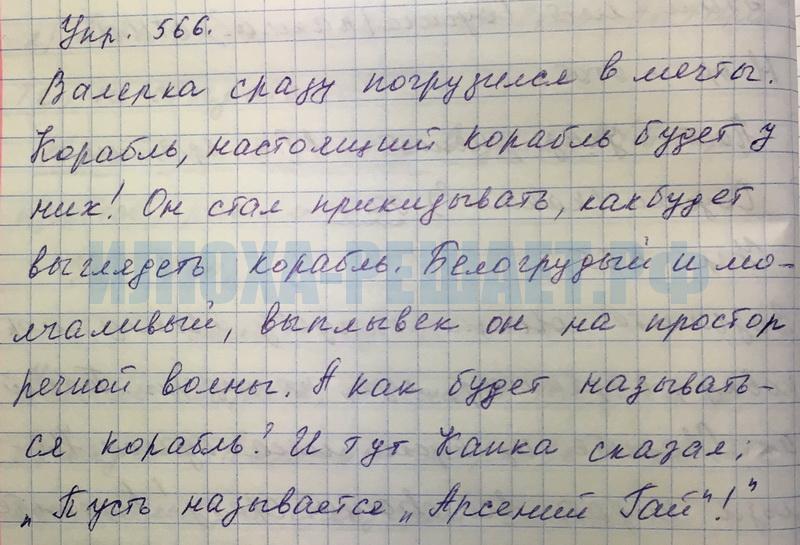 Упр. 566.
Валерка сразу погрузился в мечты.
Корабль, настоящий корабль будет у
них! Он стал прикидывать, как будет
выглядеть корабль. Белогрудый и мо-
ИЛЮХА-РЕШАЕТ.РФ
лчаливый, выплывек он на простор
речной волны. А как будет называть-
ся корабль? И тут Капка сказал:
„Пусть называется „Арсений Гай"!"